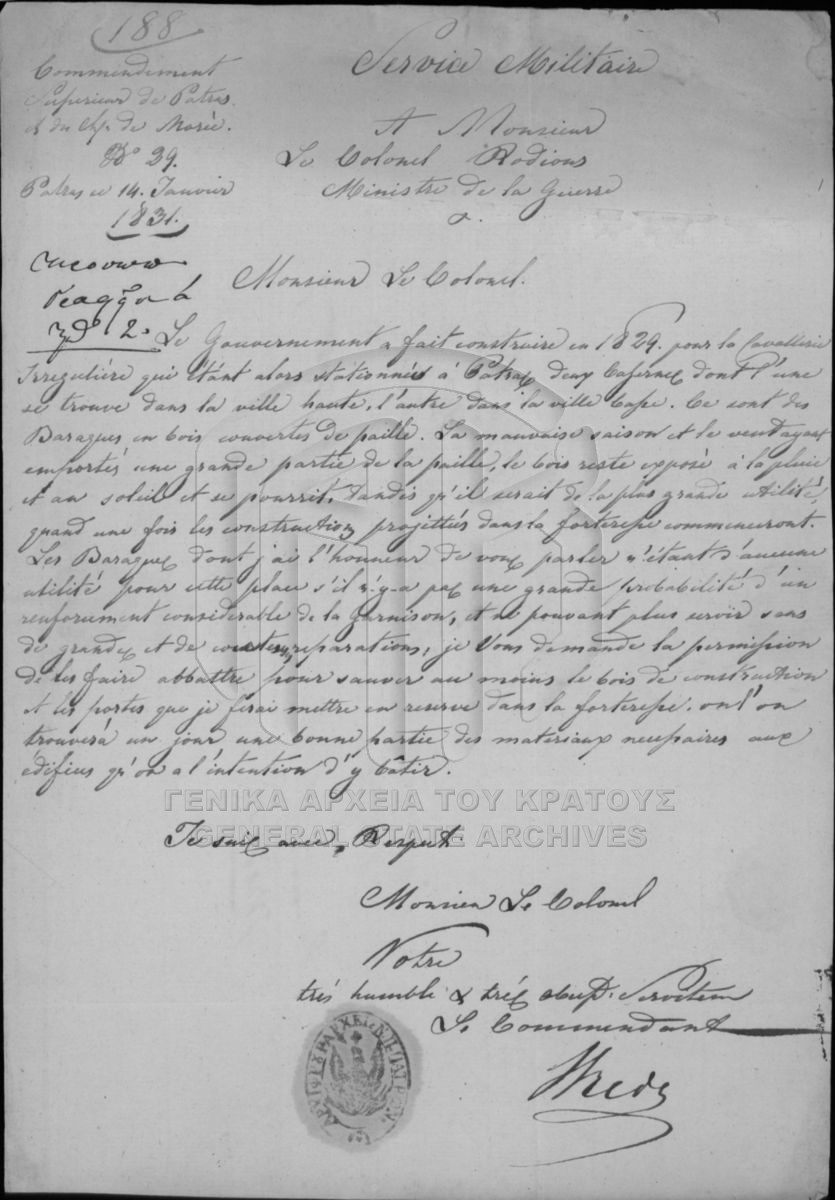 188
Commendement
Superieur de Patras
et du Ch. de Morée.
No 29.
Patras ce 14. Janvier
1831.
Service Militaire
A Monsieur
Le Colonel Rodious
Ministre de la Guerre
Monsieur Le Colonel.
Le Gouvernement a fait construire en 1829. pour la Cavallerie
Irreguliére qui étant alors stationnés à Patras deux Casernes dont l'une
se trouve dans la ville haute, l'autre dans la ville basse. Ce sont des
Baraques en bois couvertes de paille. La mauvaise saison et le vent ayant
emportés une grande partie de la paille, le bois reste exposé à la pluie
et au soleil et se pourrit, tandis qu'il serait de la plus grande utilité,
quand une fois les constructions projettiés dans la forteresse commenceront.
Les Baraques dont j'ai l'honneur de vous parler n'étant d'aucune
utilité pour cette place s'il n'y-a pas une grande probabilité d'un
renforcement considerable de la garnison, et ne pouvant plus servir sans
de grandes et de couteuses reparations, je Vous demande la permission
de les faire abbattre pour sauver au moins le bois de construction
et les portes que je ferai mettre en reserve dans la forteresse. on l'on
trouverá un jour une bonne partie des materiaux necessaires aux
édifices qu'on a l'intention d'y bâtir.
ΓΕΝΙΚΑ ΑΡΧΕΙΑ ΤΟΥ ΚΡΑΤΟΥΣ
GENERAL STATE ARCHIVES
Je suis avec, Respect
Monsieur Le Colonel
Votre
trés humble & trés obeisst Serviteur
Le Commendant